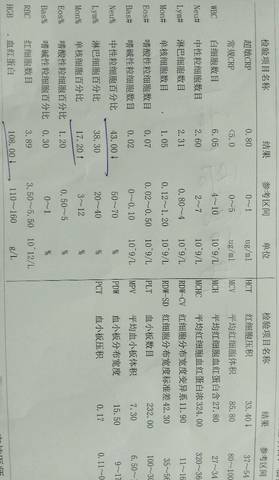 检验项目名称 结果 参考区间 单位 检验项目名称 结果 参考区间
超敏CRP 0.80 0~1 ug/ml HCT 红细胞压积 33.40↓ 37~54
常规CRP <5.0 0~5 ug/ml MCV 平均红细胞体积 85.80 80~100
WBC 白细胞数目 6.05 4~10 10^9/L MCH 平均红细胞血红蛋白含 27.80 27~34
Neu# 中性粒细胞数目 2.60 2~7 10^9/L MCHC 平均红细胞血红蛋白浓 324.00 320~36
Lym# 淋巴细胞数目 2.31 0.80~4 10^9/L RDW-CV 红细胞分布宽度变异系 11.90 11~16
Mon# 单核细胞数目 1.05 0.12~1.20 10^9/L RDW-SD 红细胞分布宽度标准差 42.30 35~56
Eos# 嗜酸性粒细胞数目 0.07 0.02~0.50 10^9/L PLT 血小板数目 232.00 100~30
Bas# 嗜碱性粒细胞数目 0.02 0~0.10 10^9/L MPV 平均血小板体积 7.30 6.50~
Neu% 中性粒细胞百分比 43.00↓ 50~70 % PDW 血小板分布宽度 15.50 9~17
Lym% 淋巴细胞百分比 38.30 20~40 % PCT 血小板压积 0.17 0.11~0
Mon% 单核细胞百分比 17.20↑ 3~12 %
Eos% 嗜酸性粒细胞百分比 1.20 0.50~5 %
Bas% 嗜碱性粒细胞百分比 0.30 0~1 %
RBC 红细胞数目 3.89 3.50~5.50 10^12/L
HGB 血红蛋白 108.00↓ 110~160 g/L